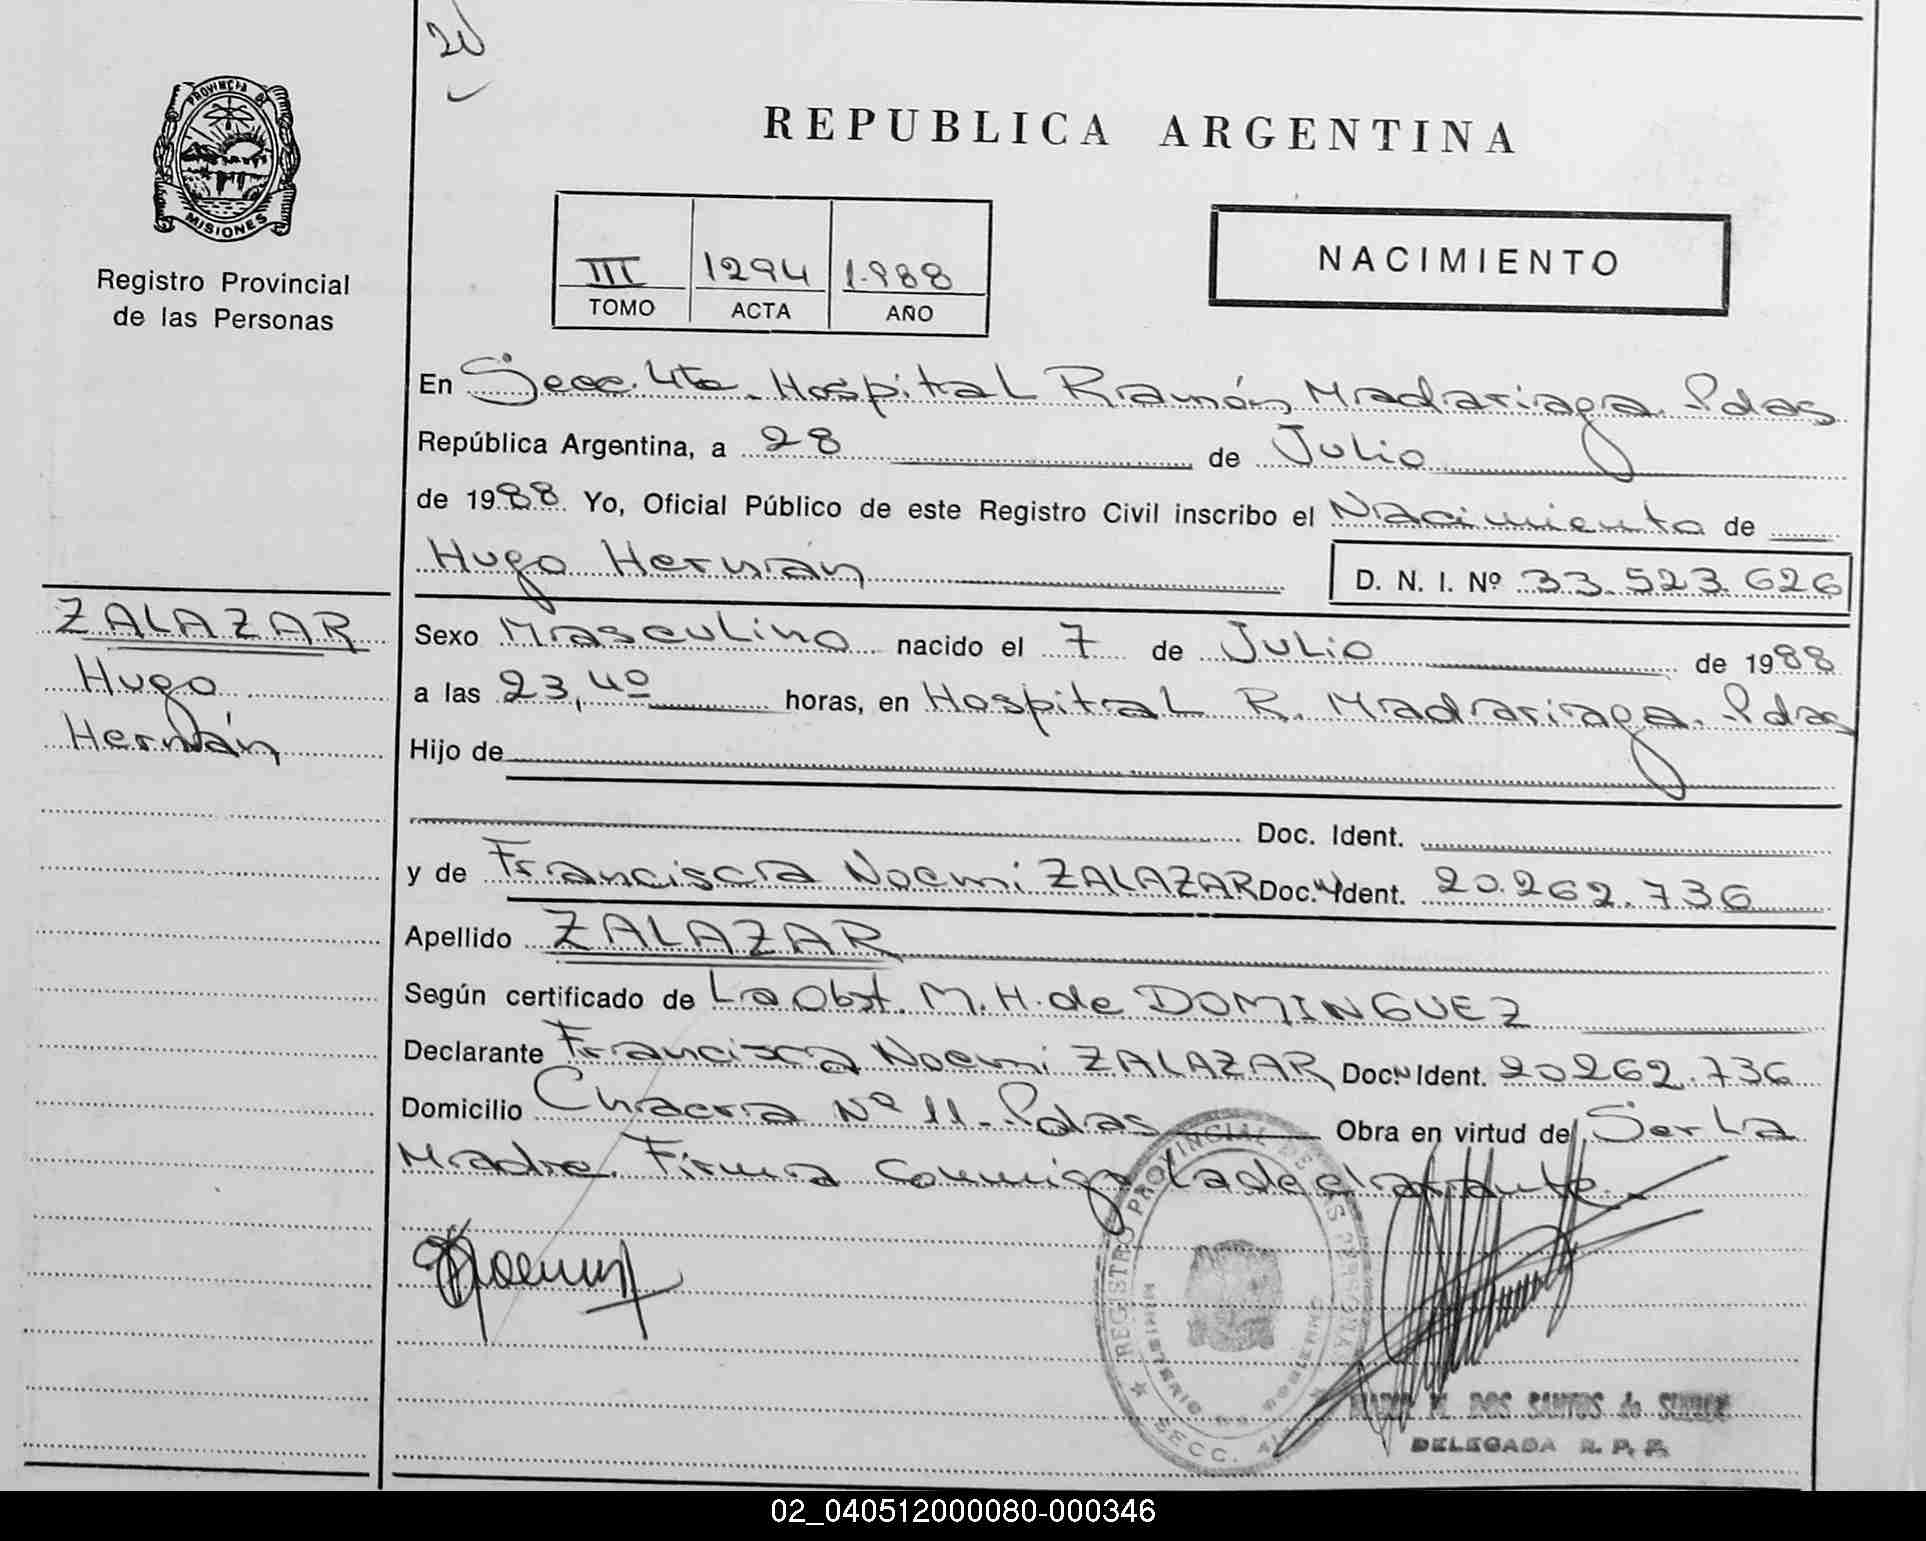 20
PROVINCIA DE
MISIONES
Registro Provincial
de las Personas
REPUBLICA ARGENTINA
III 1294 1.988
TOMO ACTA AÑO
NACIMIENTO
En Secc. 4ta. Hospital Ramón Madariaga. Pdas
República Argentina, a 28 de Julio
de 1988 Yo, Oficial Público de este Registro Civil inscribo el Nacimiento de
Hugo Hernán D. N. I. Nº 33.523.626
ZALAZAR
Hugo
Hernán
Sexo Masculino nacido el 7 de Julio de 1988
a las 23,40 horas, en Hospital R. Madariaga. Pdas
Hijo de
Doc. Ident.
y de Francisca Noemi ZALAZAR Doc. Ident. 20.262.736
Apellido ZALAZAR
Según certificado de La Obst. M. H. de DOMINGUEZ
Declarante Francisca Noemi ZALAZAR Doc. Ident. 20262.736
Domicilio Chacra Nº 11. Pdas Obra en virtud de Ser La
Madre. Firma Conmigo La declarante.
REGISTRO PROVINCIAL DE LAS PERSONAS
MINISTERIO DE GOBIERNO
SECC.
M. DOS SANTOS de
DELEGADA R. P. P.
02_040512000080-000346